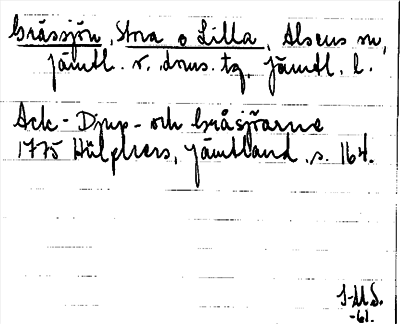 Gråssjön, Stora o Lilla, Alsens sn,
Jämtl. v. doms. tg, Jämtl. l.
Ack- Djup- och Gråsjöarne
1775 Hülphers, Jämtland, s. 164.
J-M.S.
-61.